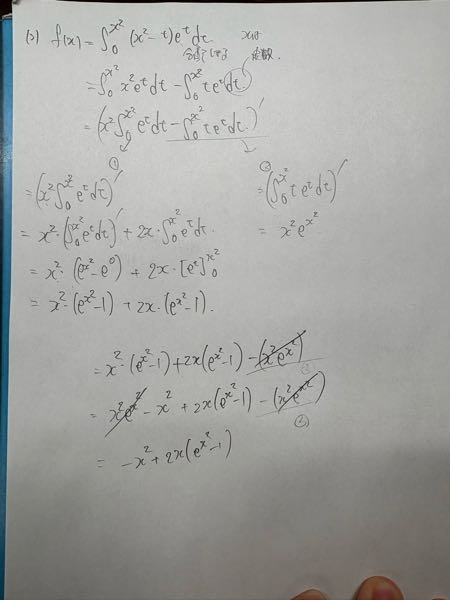 (3) f(x) = ∫₀^{x²} (x² - t) e^t dt. xは
定数.
= ∫₀^{x²} x² e^t dt - ∫₀^{x²} t e^t dt.
= (x² ∫₀^{x²} e^t dt - ∫₀^{x²} t e^t dt.)′
① ②
= (x² ∫₀^{x²} e^t dt)′ = (∫₀^{x²} t e^t dt)′
= x² · (∫₀^{x²} e^t dt)′ + 2x · ∫₀^{x²} e^t dt. = x² e^{x²}
= x² · (e^{x²} - e⁰) + 2x · [e^t]₀^{x²}
= x² · (e^{x²} - 1) + 2x · (e^{x²} - 1).
= x² · (e^{x²} - 1) + 2x (e^{x²} - 1) - (x² e^{x²})
②
= x² e^{x²} - x² + 2x (e^{x²} - 1) - (x² e^{x²})
②
= -x² + 2x (e^{x²} - 1)